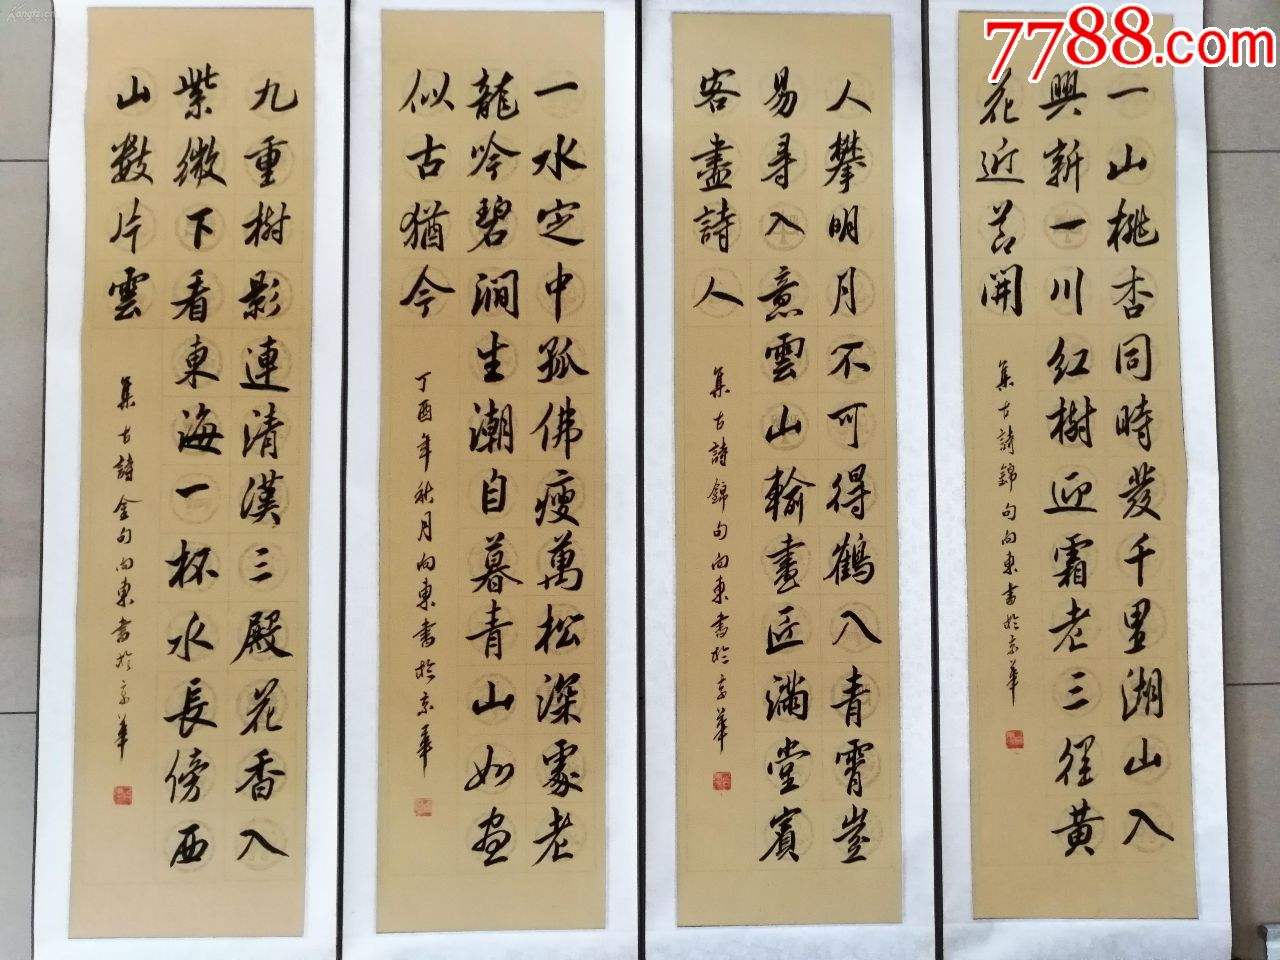 7788.com
一山桃杏同時發千里湖山入
興新一川紅樹迎霜老三徑黃
花近開
集古詩錦句向東書於京華
人攀明月不可得鶴入青霄豈
易尋入意雲山輸畫匠滿堂賓
客盡詩人
集古詩錦句向東書於京華
一水定中孤佛瘦萬松深處老
龍吟碧澗生潮自暮青山如畫
似古猶今
丁酉年秋月向東書於京華
九重樹影連清漢三殿花香入
紫微下看東海一杯水長傍西
山數片雲
集古詩金句向東書於京華